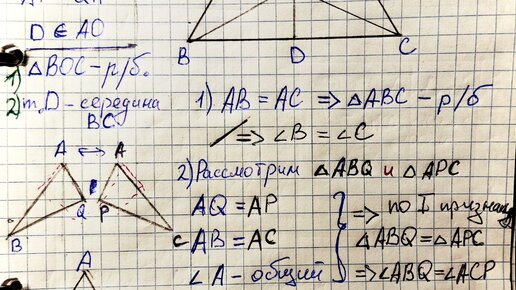 D ∈ AO
1) △BOC – р/б.
2) т. D – середина
BC
A ↔ A
Q P
B C
A
B D C
1) AB = AC ⇒ △ABC – р/б
⇒ ∠B = ∠C
2) Рассмотрим △ABQ и △APC
AQ = AP
AB = AC
∠A – общий
⇒ по I признаку
△ABQ = △APC
⇒ ∠ABQ = ∠ACP